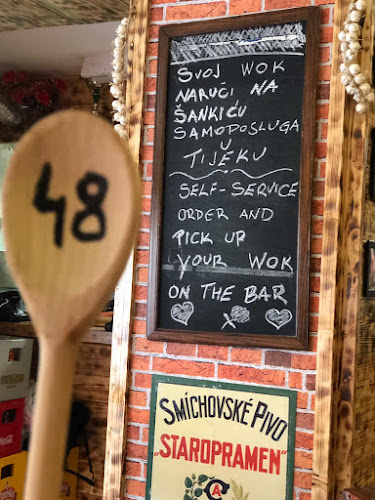 48
SVOJ WOK
NARUČI NA
ŠANKIĆU
SAMOPOSLUGA
U
TIJEKU
SELF-SERVICE
ORDER AND
PICK UP
YOUR WOK
ON THE BAR
SMÍCHOVSKÉ PIVO
"STAROPRAMEN"